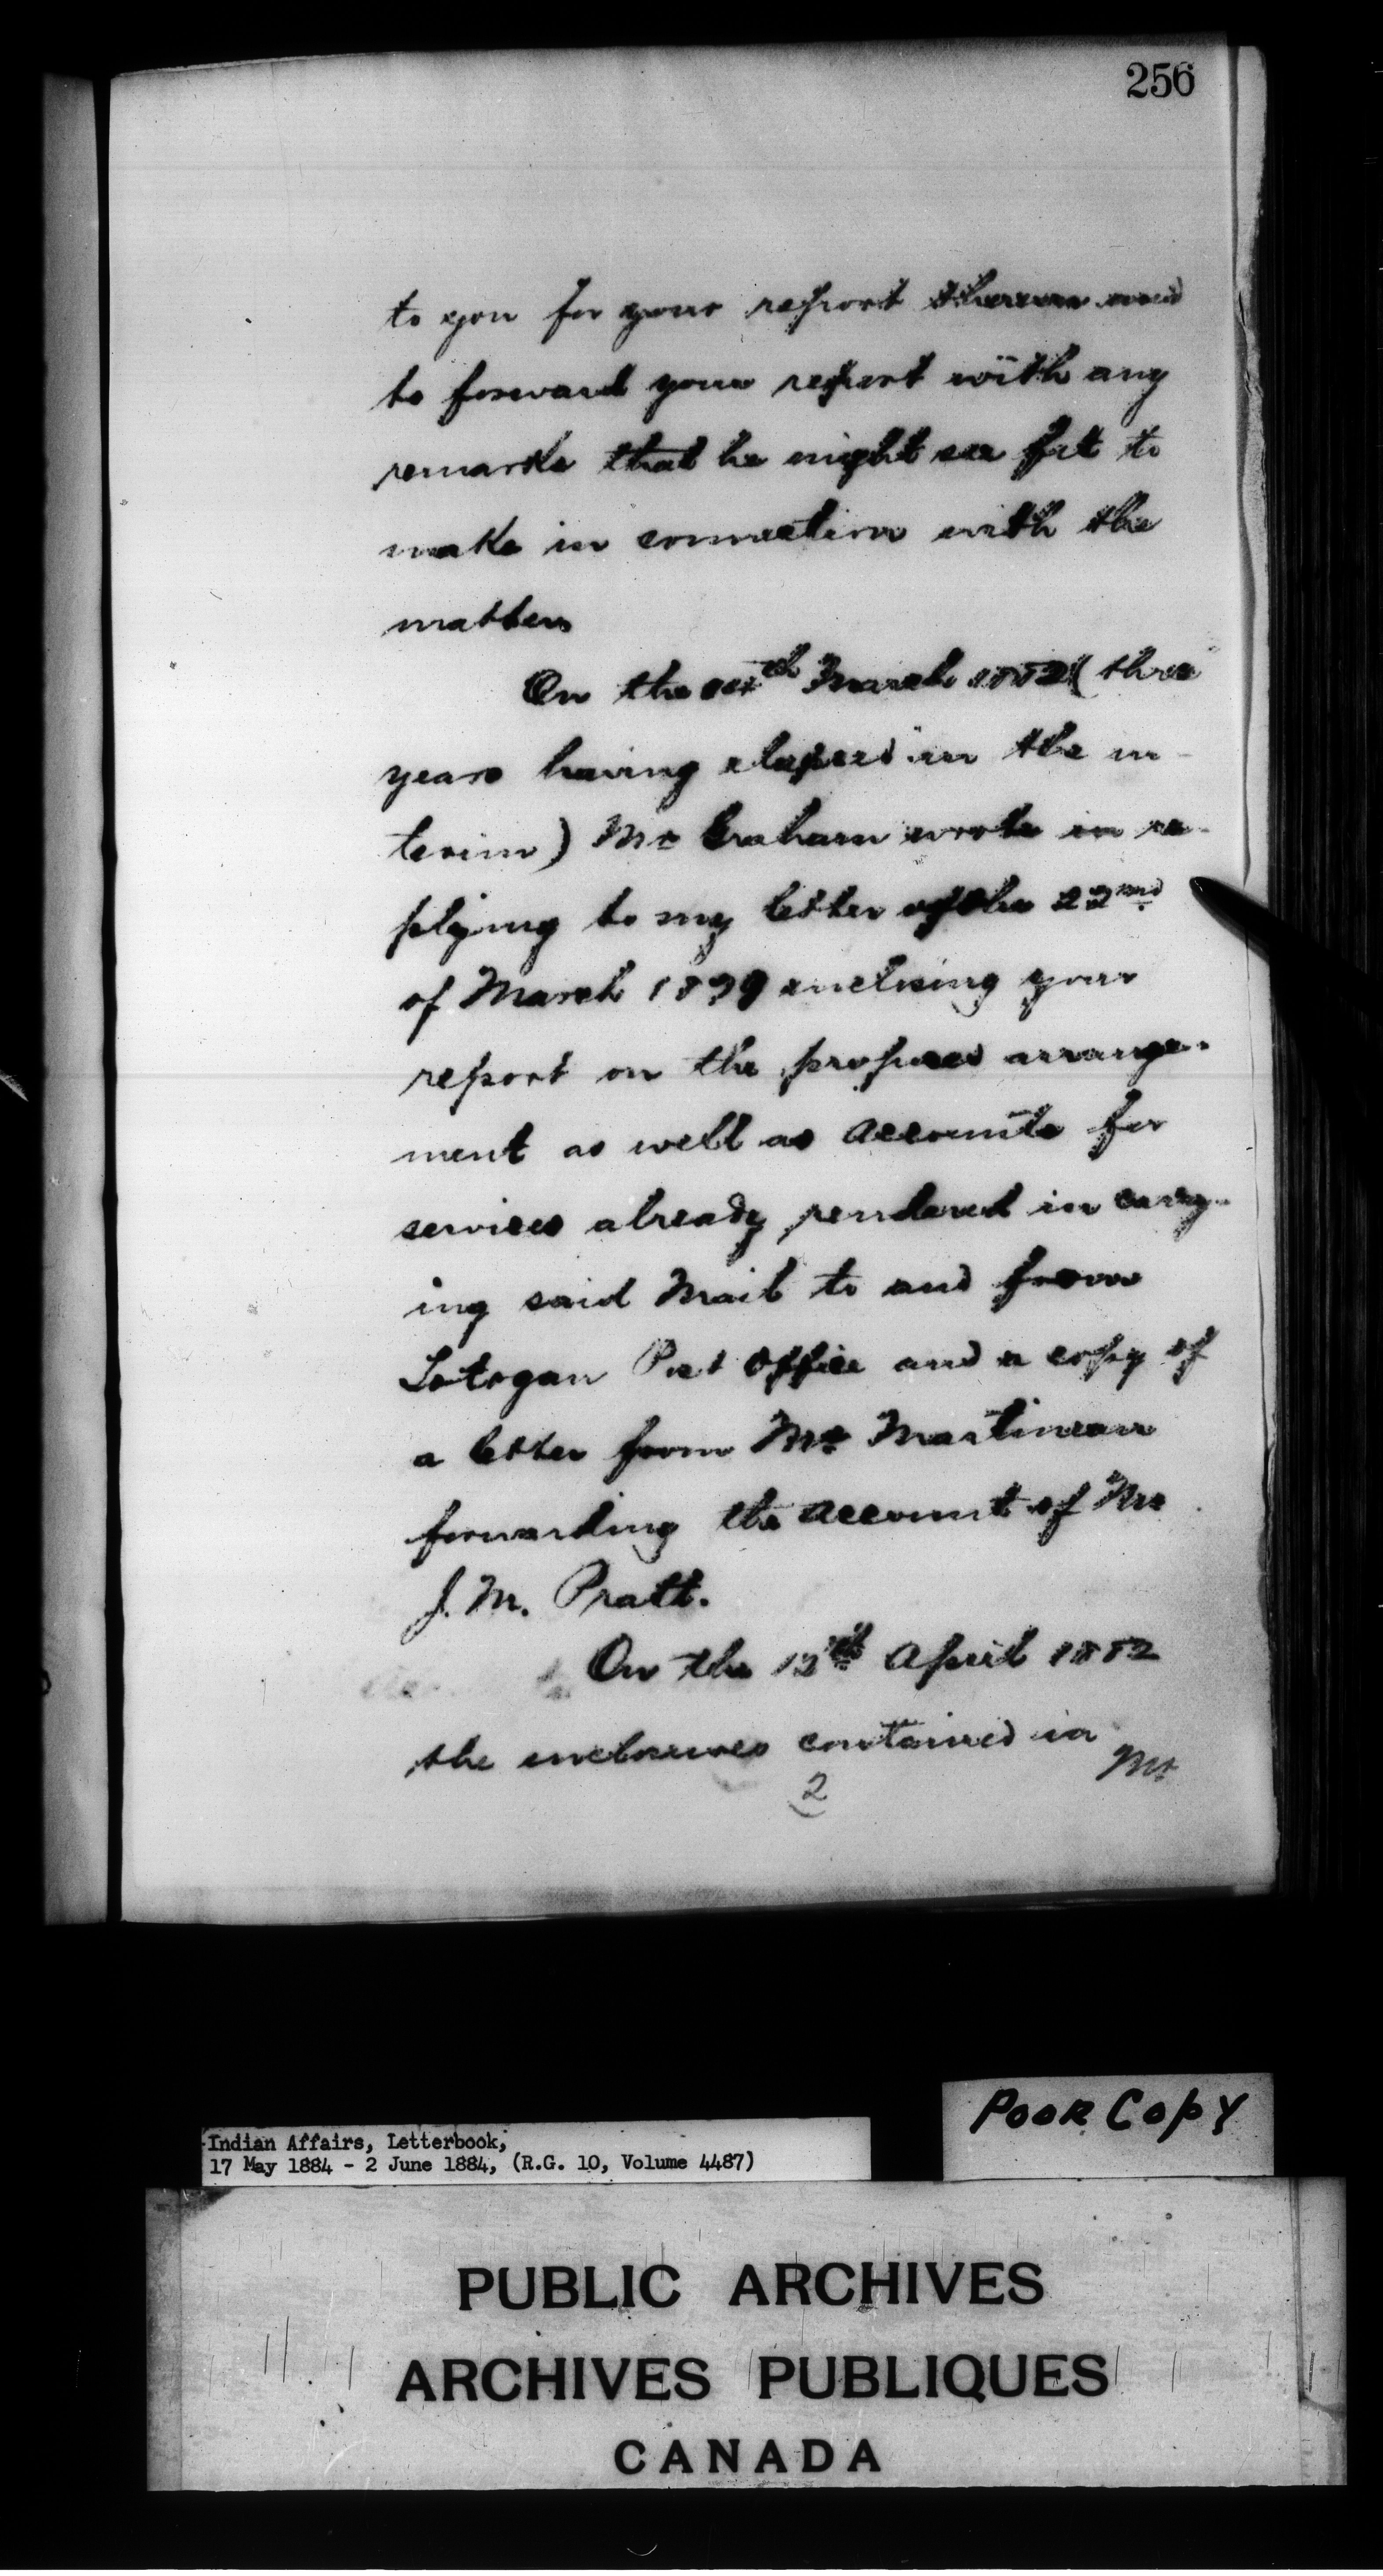 256
to you for your report thereon and
to forward your report with any
remarks that he might see fit to
make in connection with the
matter.
On the th March 1882 (three
years having elapsed in the in-
terim) Mr Graham wrote in re-
plying to my letter of the 22nd
of March 1879 enclosing your
report on the proposed arrange-
ment as well as accounts for
services already rendered in carry-
ing said Mail to and from
Totogan Post Office and a copy of
a letter from Mr Martineau
forwarding the account of Mr
J. M. Pratt.
On the 12th April 1882
the enclosures contained in
Mr
2
Poor Copy
Indian Affairs, Letterbook,
17 May 1884 - 2 June 1884, (R.G. 10, Volume 4487)
PUBLIC ARCHIVES
ARCHIVES PUBLIQUES
CANADA